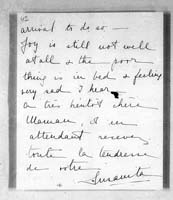 42
arrival to do so —
Joy is still not well
at all & the poor
thing is in bed & feeling
very sad I hear
a très bientôt chère
Maman, et en
attendant recevez
toute la tendresse
de votre
Susanita